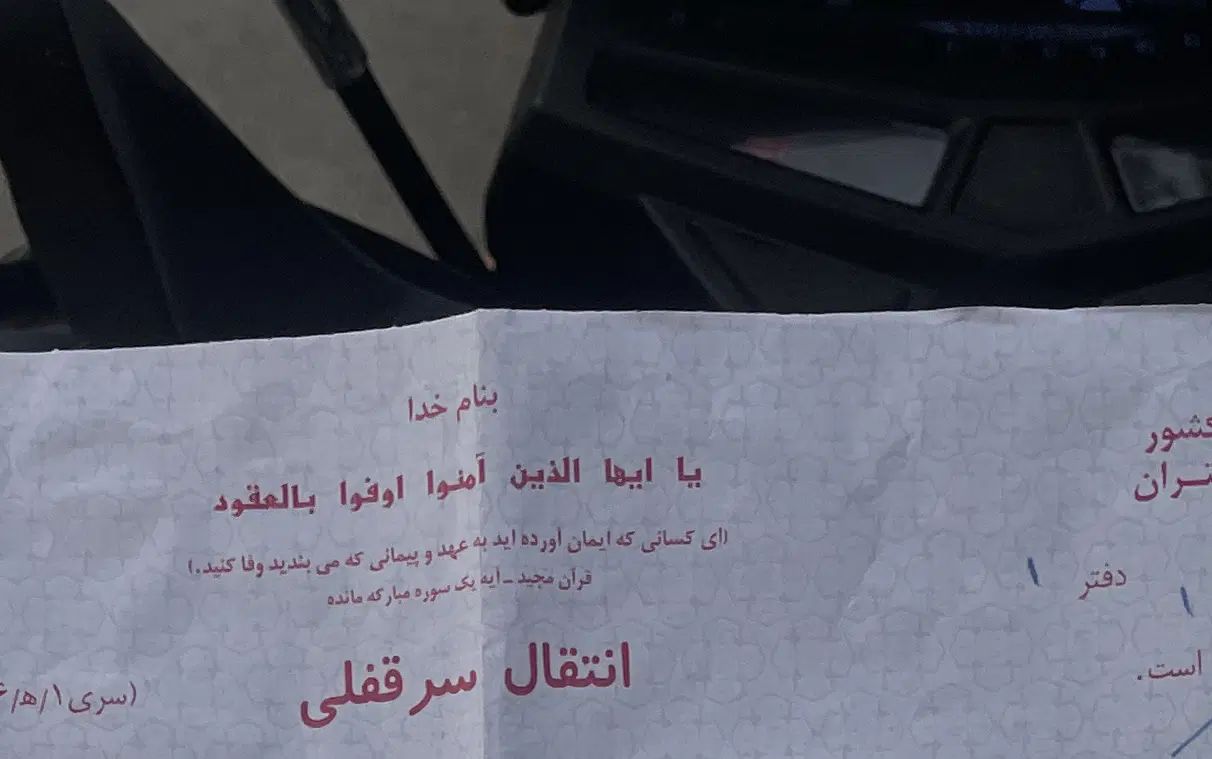 بنام خدا
یا ایها الذین آمنوا اوفوا بالعقود
(ای کسانی که ایمان آورده اید به عهد و پیمانی که می بندید وفا کنید.)
قرآن مجید ـ آیه یک سوره مبارکه مائده
انتقال سرقفلی
(سری ۱/ه/
کشور
دفتر ۱
است.